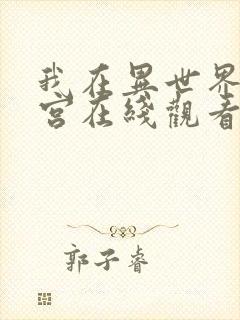 我在異世界
宮在綫觀看
郭子睿